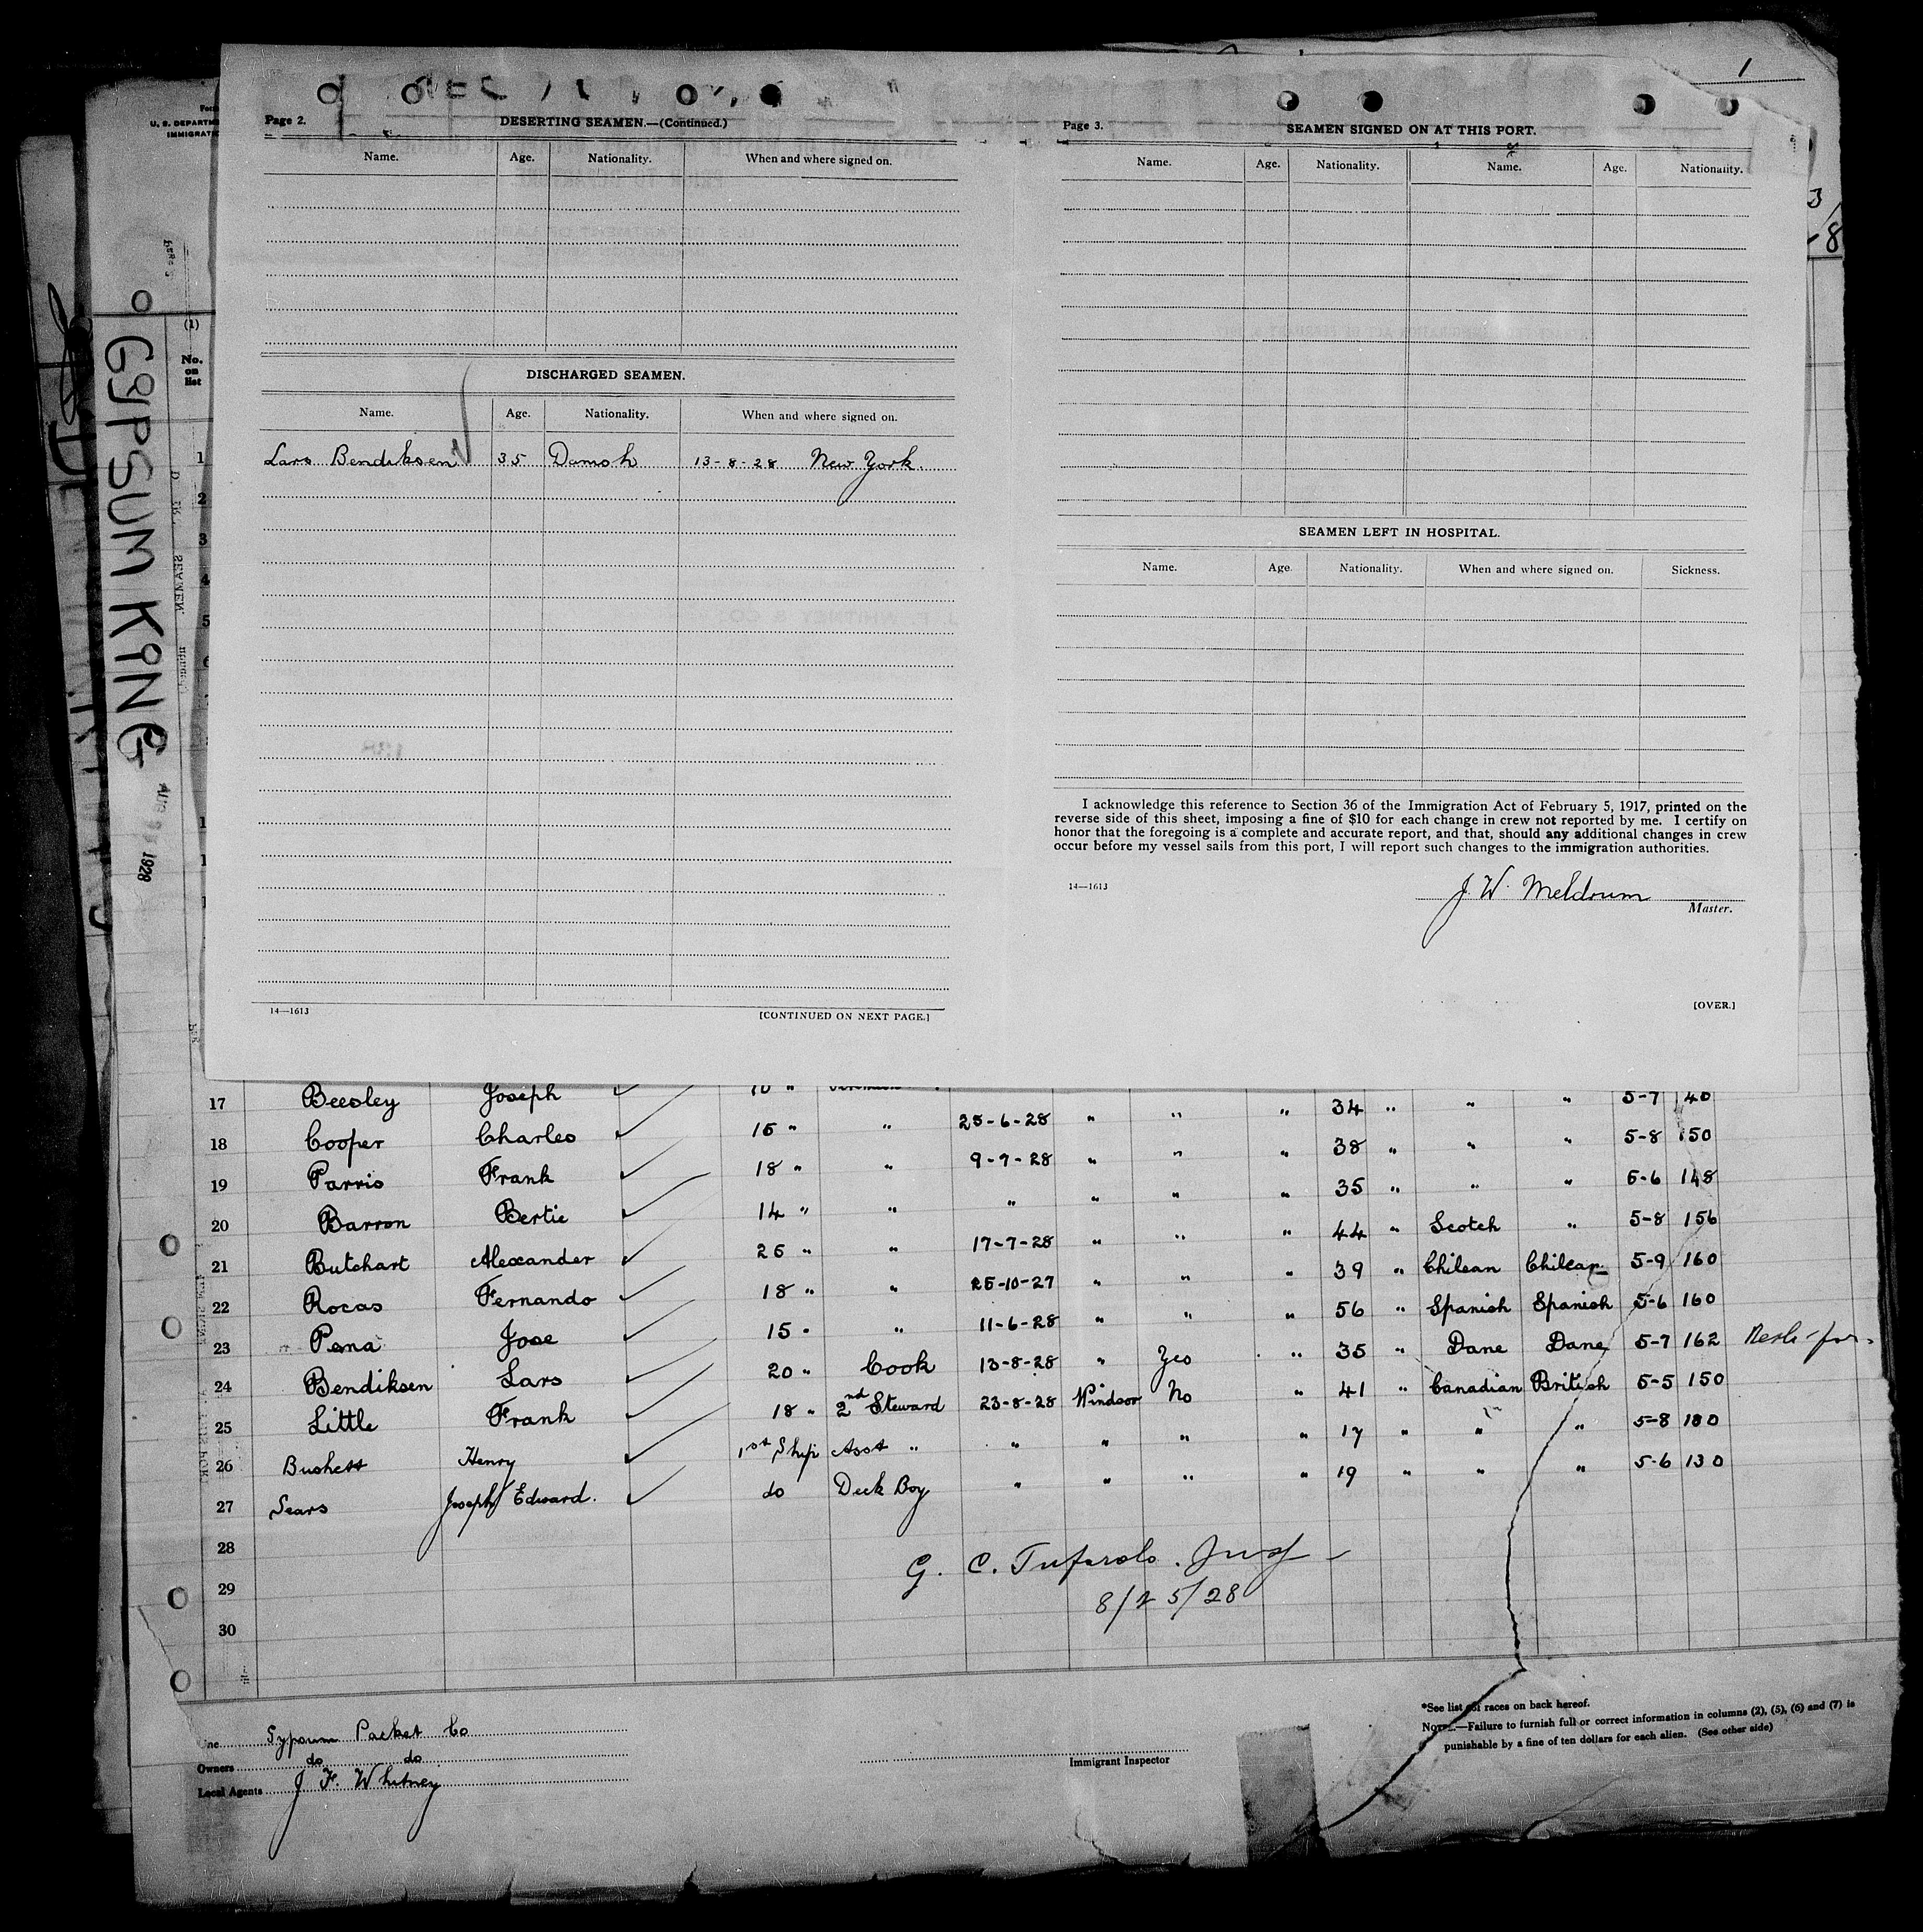 1
Page 2.
DESERTING SEAMEN.—(Continued.)
Name. Age. Nationality. When and where signed on.
DISCHARGED SEAMEN.
Name. Age. Nationality. When and where signed on.
Lars Bendiksen 35 Danish 13-8-28 New York.
14—1613 [CONTINUED ON NEXT PAGE.]
Page 3.
SEAMEN SIGNED ON AT THIS PORT.
Name. Age. Nationality. Name. Age. Nationality.
SEAMEN LEFT IN HOSPITAL.
Name. Age. Nationality. When and where signed on. Sickness.
I acknowledge this reference to Section 36 of the Immigration Act of February 5, 1917, printed on the
reverse side of this sheet, imposing a fine of $10 for each change in crew not reported by me. I certify on
honor that the foregoing is a complete and accurate report, and that, should any additional changes in crew
occur before my vessel sails from this port, I will report such changes to the immigration authorities.
14—1613
J. W. Meldrum
Master.
[OVER.]
U. S. DEPARTM
IMMIGRATI
GYPSUM KING
1928
(1)
No.
on
list
1
2
3
4
5
17 Beesley Joseph " 34 " " " 5-7 140
18 Cooper Charles 15 " " 25-6-28 " " " 38 " " " 5-8 150
19 Parris Frank 18 " " 9-7-28 " " " 35 " " " 5-6 148
20 Barron Bertie 14 " " " " " " 44 " Scotch " 5-8 156
21 Butchart Alexander 25 " " 17-7-28 " " " 39 " Chilean Chilean 5-9 160
22 Rocas Fernando 18 " " 25-10-27 " " " 56 " Spanish Spanish 5-6 160
23 Pena Jose 15 " " 11-6-28 " " " 35 " Dane Dane 5-7 162
24 Bendiksen Lars 20 " Cook 13-8-28 " Yes " 41 " Canadian British 5-5 150
25 Little Frank 18 " 2nd Steward 23-8-28 Windsor No " 17 " " " 5-8 180
26 Bushett Henry 1st Ship Asst " " " " " 19 " " " 5-6 130
27 Sears Joseph Edward. do Deck Boy " " "
28
29
30
8/25/28
Gypsum Packet Co
Owners do do
Local Agents J F. Whitney
Immigrant Inspector
*See list of races on back hereof.
NOTE.—Failure to furnish full or correct information in columns (2), (5), (6) and (7) is
punishable by a fine of ten dollars for each alien. (See other side)